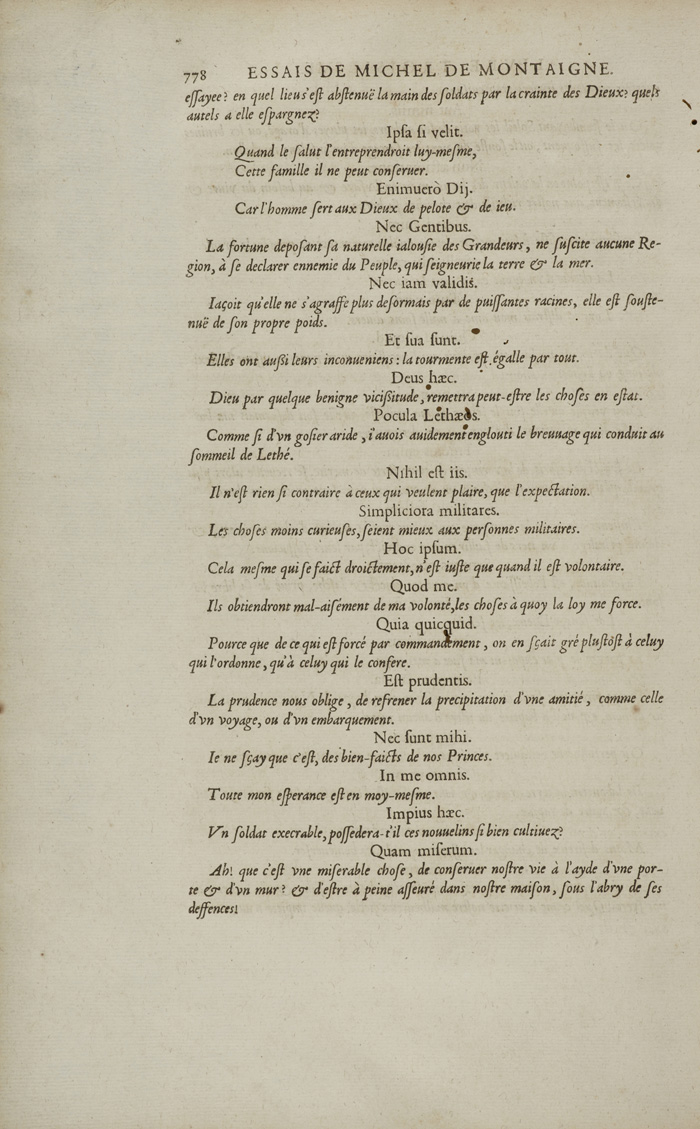 778 ESSAIS DE MICHEL DE MONTAIGNE.
eſſayee? en quel lieu s'eſt abſtenuë la main des ſoldats par la crainte des Dieux? quels
autels a elle eſpargnez?
Ipſa ſi velit.
Quand le ſalut l'entreprendroit luy-meſme,
Cette famille il ne peut conſeruer.
Enimuerò Dij.
Car l'homme ſert aux Dieux de pelote & de ieu.
Nec Gentibus.
La fortune depoſant ſa naturelle ialouſie des Grandeurs, ne ſuſcite aucune Re-
gion, à ſe declarer ennemie du Peuple, qui ſeigneurie la terre & la mer.
Nec iam validis.
Iaçoit qu'elle ne s'agraffe plus deſormais par de puiſſantes racines, elle eſt ſouſte-
nuë de ſon propre poids.
Et ſua ſunt.
Elles ont auſſi leurs inconueniens: la tourmente eſt égalle par tout.
Deus hæc.
Dieu par quelque benigne viciſſitude, remettra peut-eſtre les choſes en eſtat.
Pocula Lethæos.
Comme ſi d'vn goſier aride, i'auois auidement englouti le breuuage qui conduit au
ſommeil de Lethé.
Nihil eſt iis.
Il n'eſt rien ſi contraire à ceux qui veulent plaire, que l'expectation.
Simpliciora militares.
Les choſes moins curieuſes, ſeient mieux aux perſonnes militaires.
Hoc ipſum.
Cela meſme qui ſe faict droictement, n'eſt iuſte que quand il eſt volontaire.
Quod me.
Ils obtiendront mal-aiſément de ma volonté, les choſes à quoy la loy me force.
Quia quicquid.
Pource que de ce qui eſt forcé par commandement, on en ſçait gré pluſtôſt à celuy
qui l'ordonne, qu'à celuy qui le confere.
Eſt prudentis.
La prudence nous oblige, de refrener la precipitation d'vne amitié, comme celle
d'vn voyage, ou d'vn embarquement.
Nec ſunt mihi.
Ie ne ſçay que c'eſt, des bien-faicts de nos Princes.
In me omnis.
Toute mon eſperance eſt en moy-meſme.
Impius hæc.
Vn ſoldat execrable, poſſedera-t'il ces nouuelins ſi bien cultiuez?
Quam miſerum.
Ah! que c'eſt vne miſerable choſe, de conſeruer noſtre vie à l'ayde d'vne por-
te & d'vn mur? & d'eſtre à peine aſſeuré dans noſtre maiſon, ſous l'abry de ſes
deffences!